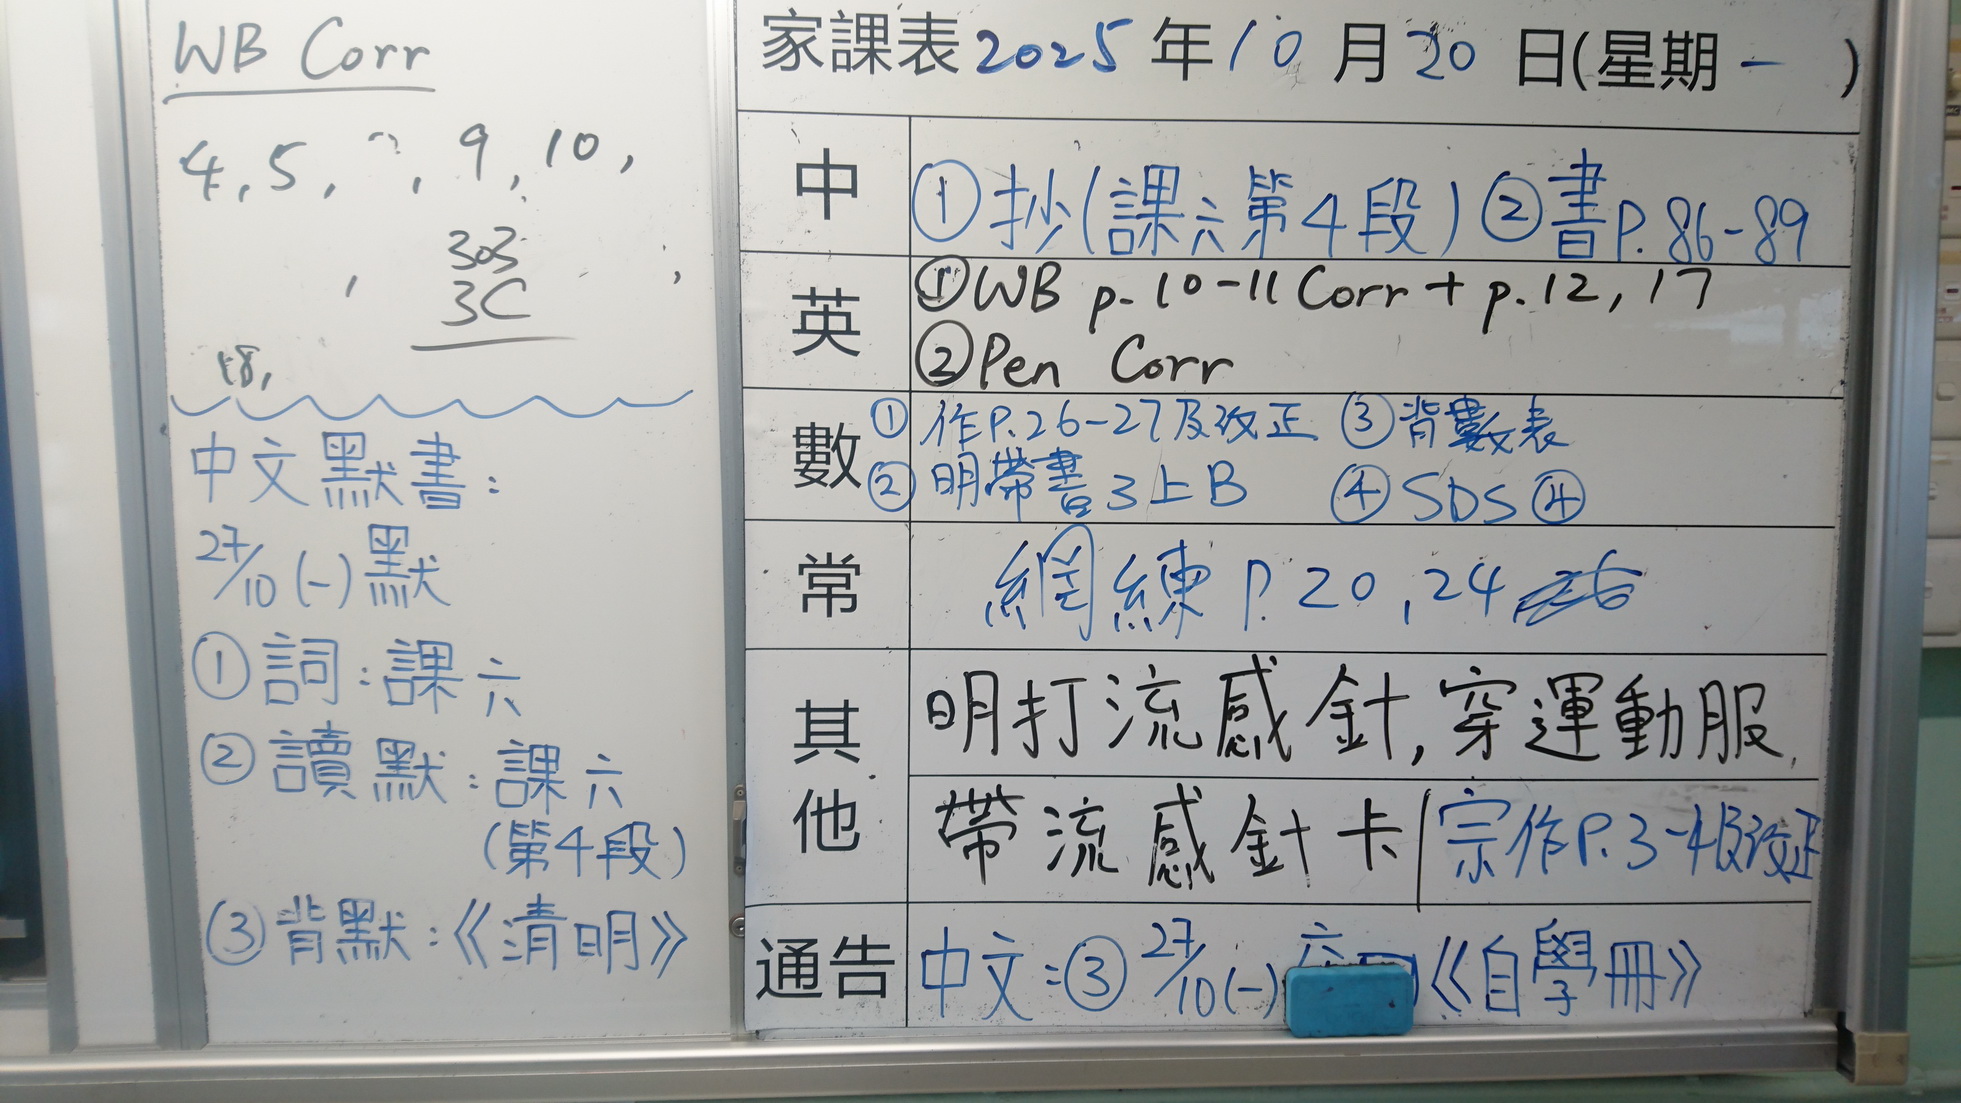 WB Corr
4, 5, , 9, 10,
, 303 ,
3C
18,
中文默書：
27/10(一)默
①詞：課六
②讀默：課六
(第4段)
③背默：《清明》
家課表2025年10月20日(星期一)
中 ①抄(課六第4段) ②書P.86-89
英 ①WB p.10-11 Corr + p.12, 17
②Pen Corr
數 ①作P.26-27及改正 ③背數表
②明帶書3上B ④SDS④
常 網練P.20,24
其他 明打流感針,穿運動服,
帶流感針卡/宗作P.3-4及改正
通告 中文：③27/10(一) 《自學冊》